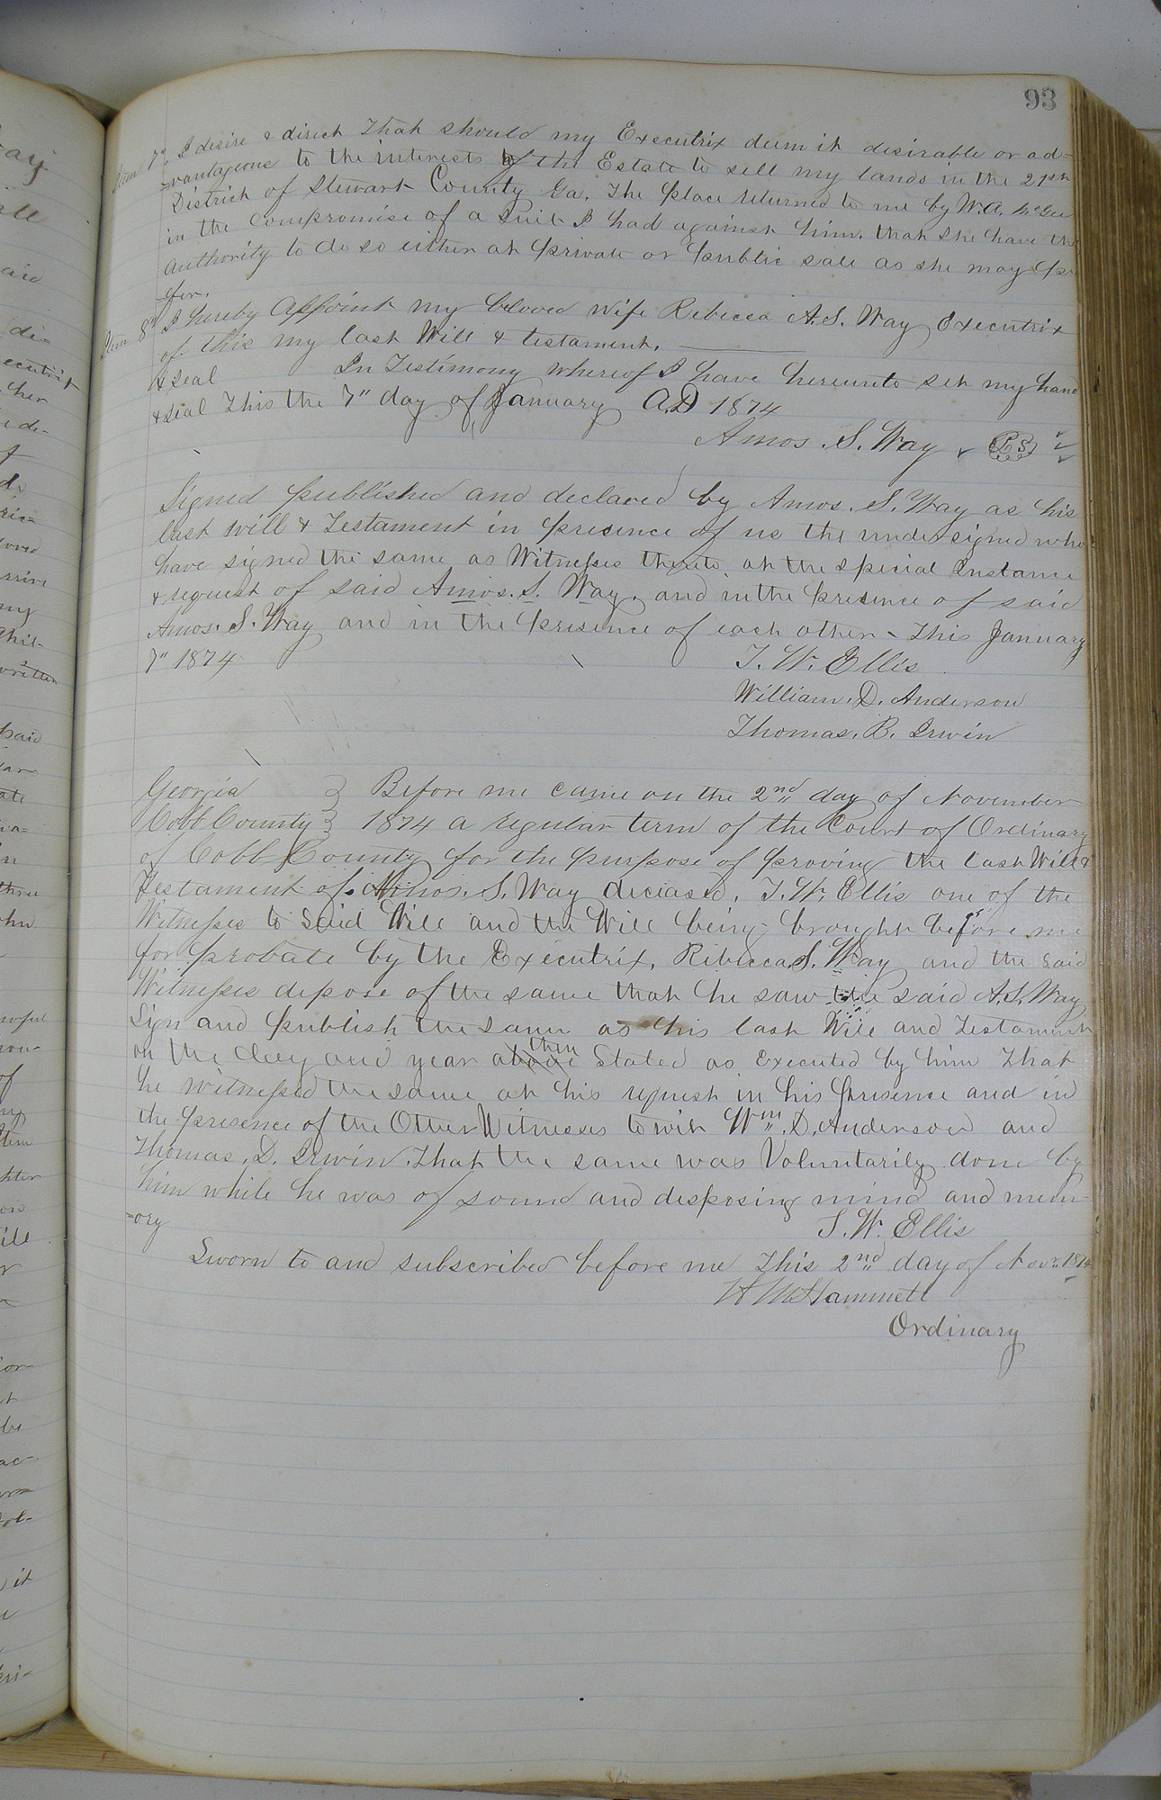 93
Item 7" I desire & direct That should my Executrix deem it desirable or ad-
=vantageous to the interests of the Estate to sell my lands in the 21st
District of Stewart County Ga. The place returned to me by W. A. McGee
in the Compromise of a Suit I had against him. that she have the
authority to do so either at private or public sale as she may pre
-fer.
Item 8" I hereby Appoint my beloved wife Rebecca A. S. Way Executrix
of this my last Will & testament.
& seal In Testimony whereof I have hereunto set my hand
& seal This the 7" day of January A.D 1874
Amos. S. Way L.S.
Signed published and declared by Amos. S. Way as his
last will & Testament in presence of us the undersigned who
have signed the same as Witnesses thereto at the special Instance
& request of said Amos. S. Way. and in the presence of said
Amos. S. Way and in the presence of each other - This January
7" 1874
T. W. Ellis
William. D. Anderson
Thomas. B. Irwin
Georgia } Before me came on the 2nd day of November
Cobb County } 1874 a regular term of the Court of Ordinary
of Cobb County for the purpose of proving the last Will &
Testament of Amos. S. Way deceased. T. W. Ellis one of the
Witnesses to said Will and the Will being brought before me
for probate by the Executrix, Rebecca S. Way and the said
Witnesses depose of the same that he saw the said A. S. Way
Sign and publish the same as his last Will and Testament
on the day and year above then Stated as Executed by him That
he witnessed the same at his request in his presence and in
the presence of the Other Witnesses to wit Wm. D. Anderson and
Thomas. D. Irwin. That the same was Voluntarily done by
him while he was of sound and disposing mind and mem-
=ory
T. W. Ellis
Sworn to and subscribed before me This 2nd day of Nov. 1874
H M Hammett
Ordinary